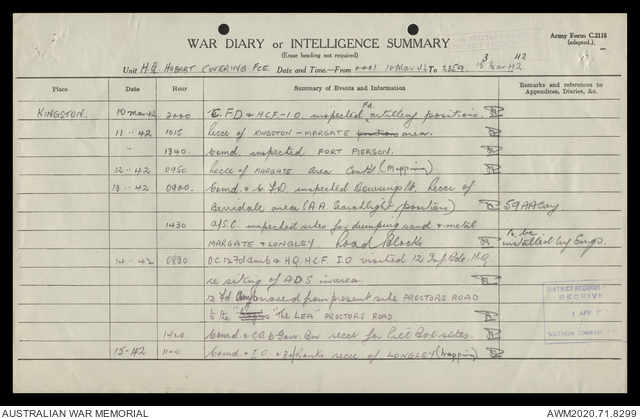 Army Form C.2118
(adapted.)
WAR DIARY or INTELLIGENCE SUMMARY
(Erase heading not required)
Unit H.Q. HOBART COVERING FCE. Date and Time.—From 0001 10 Mar 42 To 2359 15 Mar 42.
Place Date Hour Summary of Events and Information Remarks and references to Appendices, Diaries, &c.
KINGSTON. 10 Mar 42 2000 F.D & H.C.F. - I.O inspected Fd. artillery positions.
11 " 42 1015 Recce of KINGSTON - MARGATE area.
" 1340 Comd. inspected FORT PIERSON.
12 " 42 0950 Recce of MARGATE area Contd (Mapping)
13 " 42 0900 Comd. & inspected Recce of
Berriedale area (A.A. Searchlight positions) 59 AA Coy
1430 A/S.C. inspected sites for dumping sand & metal
MARGATE & LONGLEY Road Blocks To be installed by Engs.
14 " 42 0830 OC 12 Fd Amb & H.Q. H.C.F. I.O visited 12 Inf Bde H.Q.
re siting of A.D.S in area.
12 Fd Amb moved from present site PROCTORS ROAD
to the "THE LEA" PROCTORS ROAD.
1400 Comd & CO 6 Gar Bn recce for Pill Box sites.
15 - 42 1100 Comd & I.O. + 3 o/ranks recce of LONGLEY (mapping)
DISTRICT RECORDS
RECEIVE
1 APR
SOUTHERN COMMAND
AUSTRALIAN WAR MEMORIAL
AWM2020.71.8299